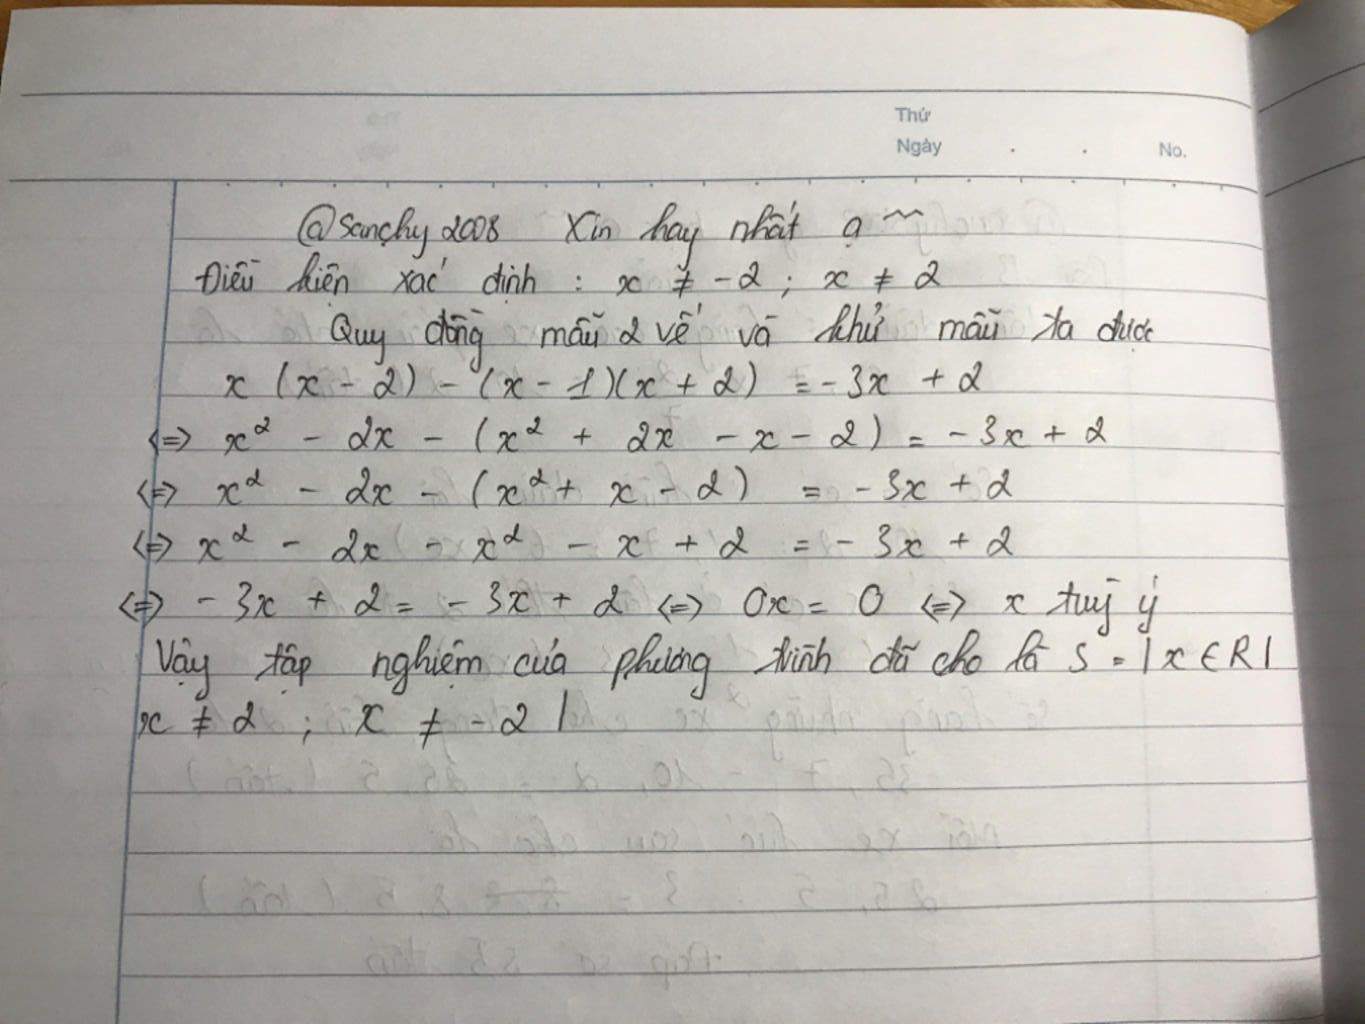 Thứ
Ngày . . No.
@Sanchy2008 Xin hay nhất ạ ~
Điều kiện xác định : x ≠ -2 ; x ≠ 2
Quy đồng mẫu 2 vế và khử mẫu ta được
x (x - 2) - (x - 1)(x + 2) = -3x + 2
<=> x² - 2x - (x² + 2x - x - 2) = -3x + 2
<=> x² - 2x - (x² + x - 2) = -3x + 2
<=> x² - 2x - x² - x + 2 = -3x + 2
<=> -3x + 2 = -3x + 2 <=> 0x = 0 <=> x tuỳ ý
Vậy tập nghiệm của phương trình đã cho là S = |x ∈ R|
x ≠ 2 ; x ≠ -2 |